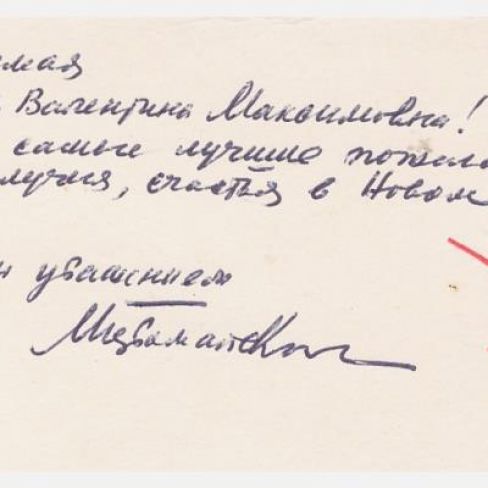 мая
Валентина Максимовна!
самые лучшие пожела
лучия, счастья в Новом
уважением